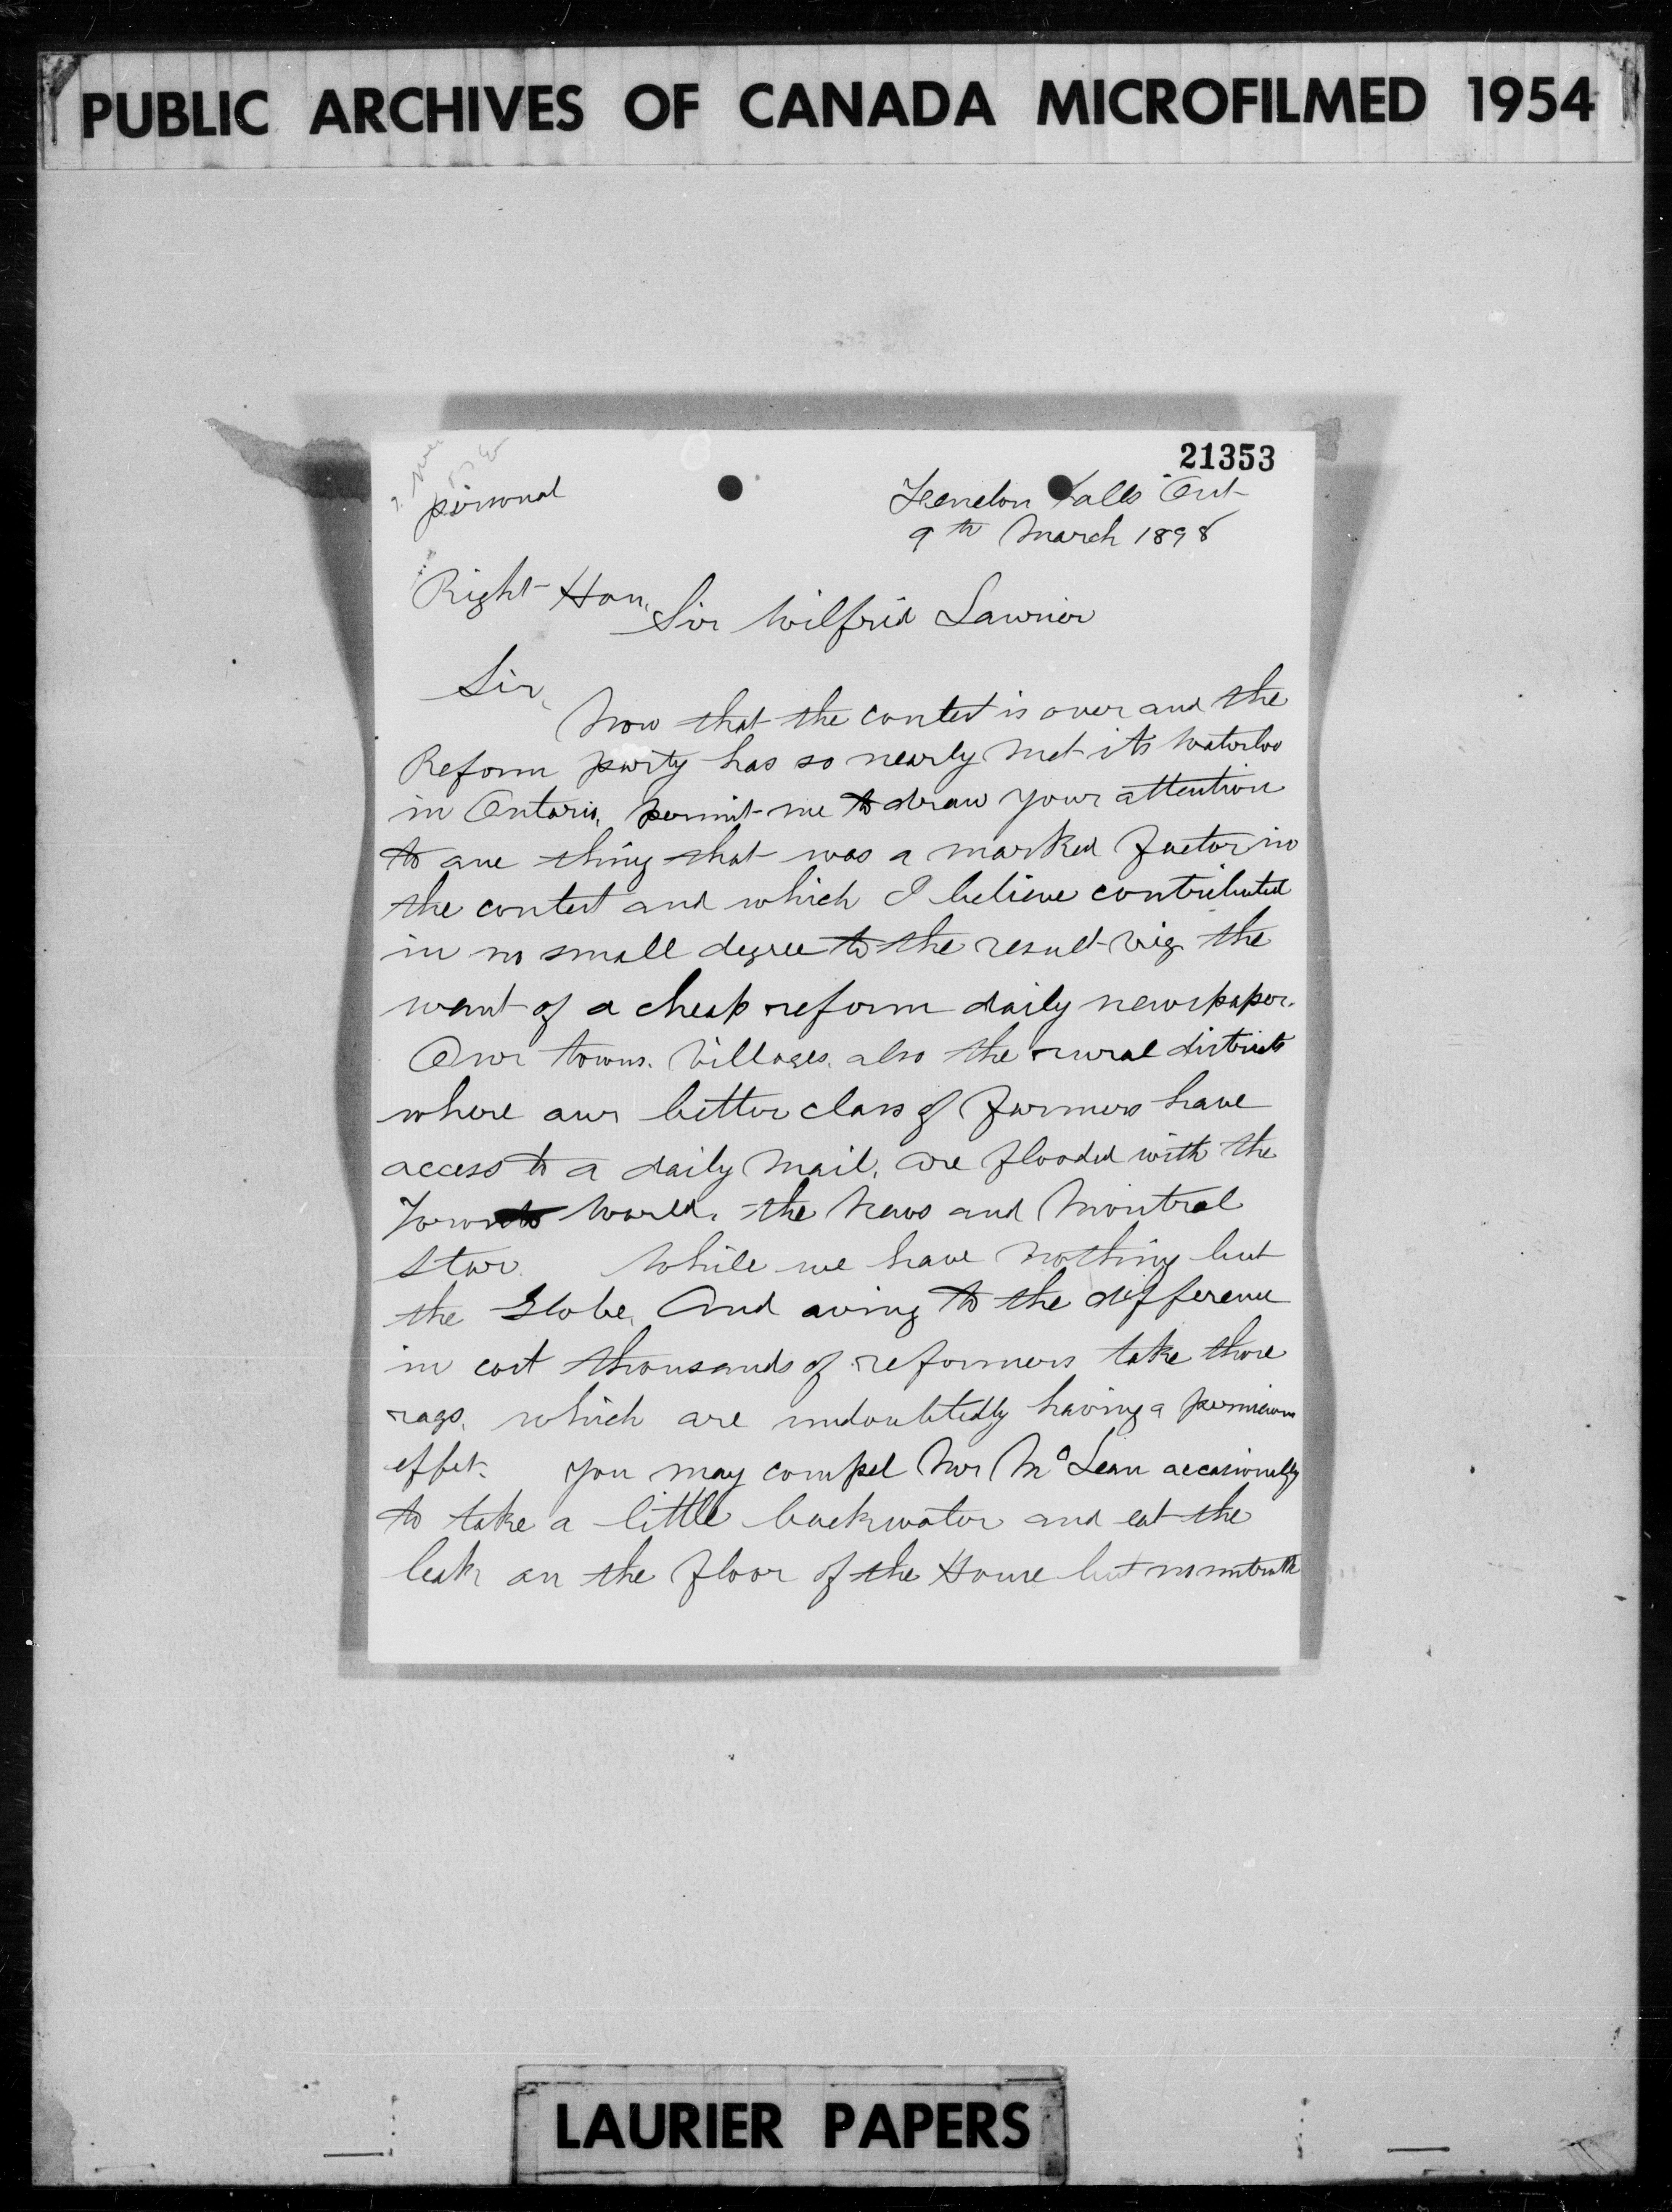 PUBLIC ARCHIVES OF CANADA MICROFILMED 1954
21353
personal
Fenelon Falls Ont
9th March 1898
Right Hon.
Sir Wilfrid Laurier
Sir,
Now that the contest is over and the
Reform party has so nearly met its Waterloo
in Ontario, permit me to draw your attention
to one thing that was a marked factor in
the contest and which I believe contributed
in no small degree to the result viz the
want of a cheap reform daily newspaper.
Our towns. Villages. also the rural districts
where our better class of farmers have
access to a daily mail, are flooded with the
Toronto World, the News and Montreal
Star. While we have nothing but
the Globe, And owing to the difference
in cost thousands of reformers take those
rags. which are undoubtedly having a pernicious
effect. You may compel Mr McLean occasionally
to take a little backwater and eat the
leak on the floor of the House but no untruth
LAURIER PAPERS